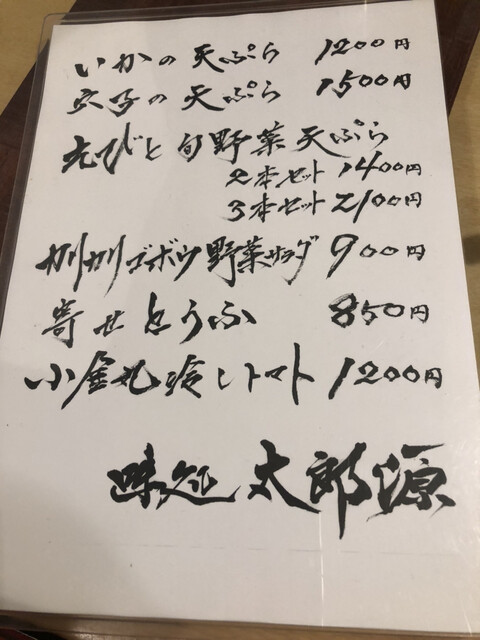 いかの天ぷら 1200円
穴子の天ぷら 1500円
えびと旬野菜天ぷら
2本セット 1400円
3本セット 2100円
カリカリゴボウ野菜サラダ 900円
寄せとうふ 850円
小金丸冷しトマト 1200円
味処 太郎源